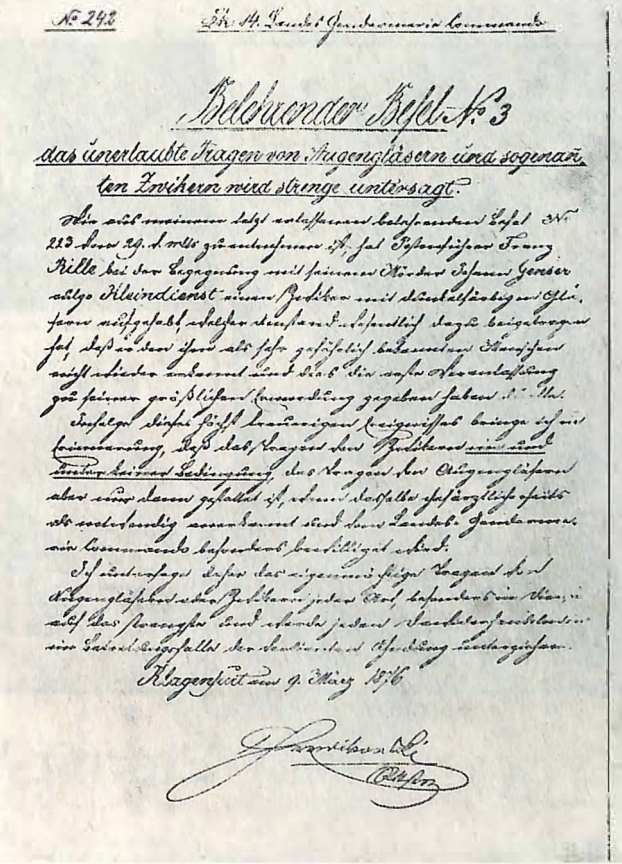 № 242
K.k. 14. Landes Gendarmerie Commando
Belehrender Befel № 3
das unerlaubte Tragen von Augengläsern und sogenan̄
ten Zwikern wird strenge untersagt.
Wie aus meinem letzt erlassenen belehrenden Befel №
223 vom 29. d. Mts zu entnehmen ist, hat Postenführer Franz
Rille bei der Begegnung mit seinem Mörder Johann Genser
vulgo Kleindienst einen Zwiker mit dunkelfärbigen Glä-
sern aufgehabt, welcher Umstand wesentlich dazu beigetragen
hat, daß er den ihm als sehr gefährlich bekannten Menschen
nicht wieder erkannt und dies die erste Veranlassung
zu seiner gräßlichen Ermordung gegeben haben
Infolge dieses höchst traurigen Ereignisses bringe ich in
Erinnerung, daß das Tragen von Zwikern nie und
unter keiner Bedingung, das Tragen von Augengläsern
aber nur dann gestattet ist, wenn dasselbe chefärztlicherseits
als notwendig anerkannt und vom Landes Gendarme-
rie Commando besonders bewilliget wird.
Ich untersage daher das eigenmächtige Tragen von
Augengläsern oder Zwikern jeder Art, besonders im
auf das strengste und werde jeden Dawiderhandelnden
im Betretungsfalle der Ahndung unterziehen.
Klagenfurt am 9. März 1876